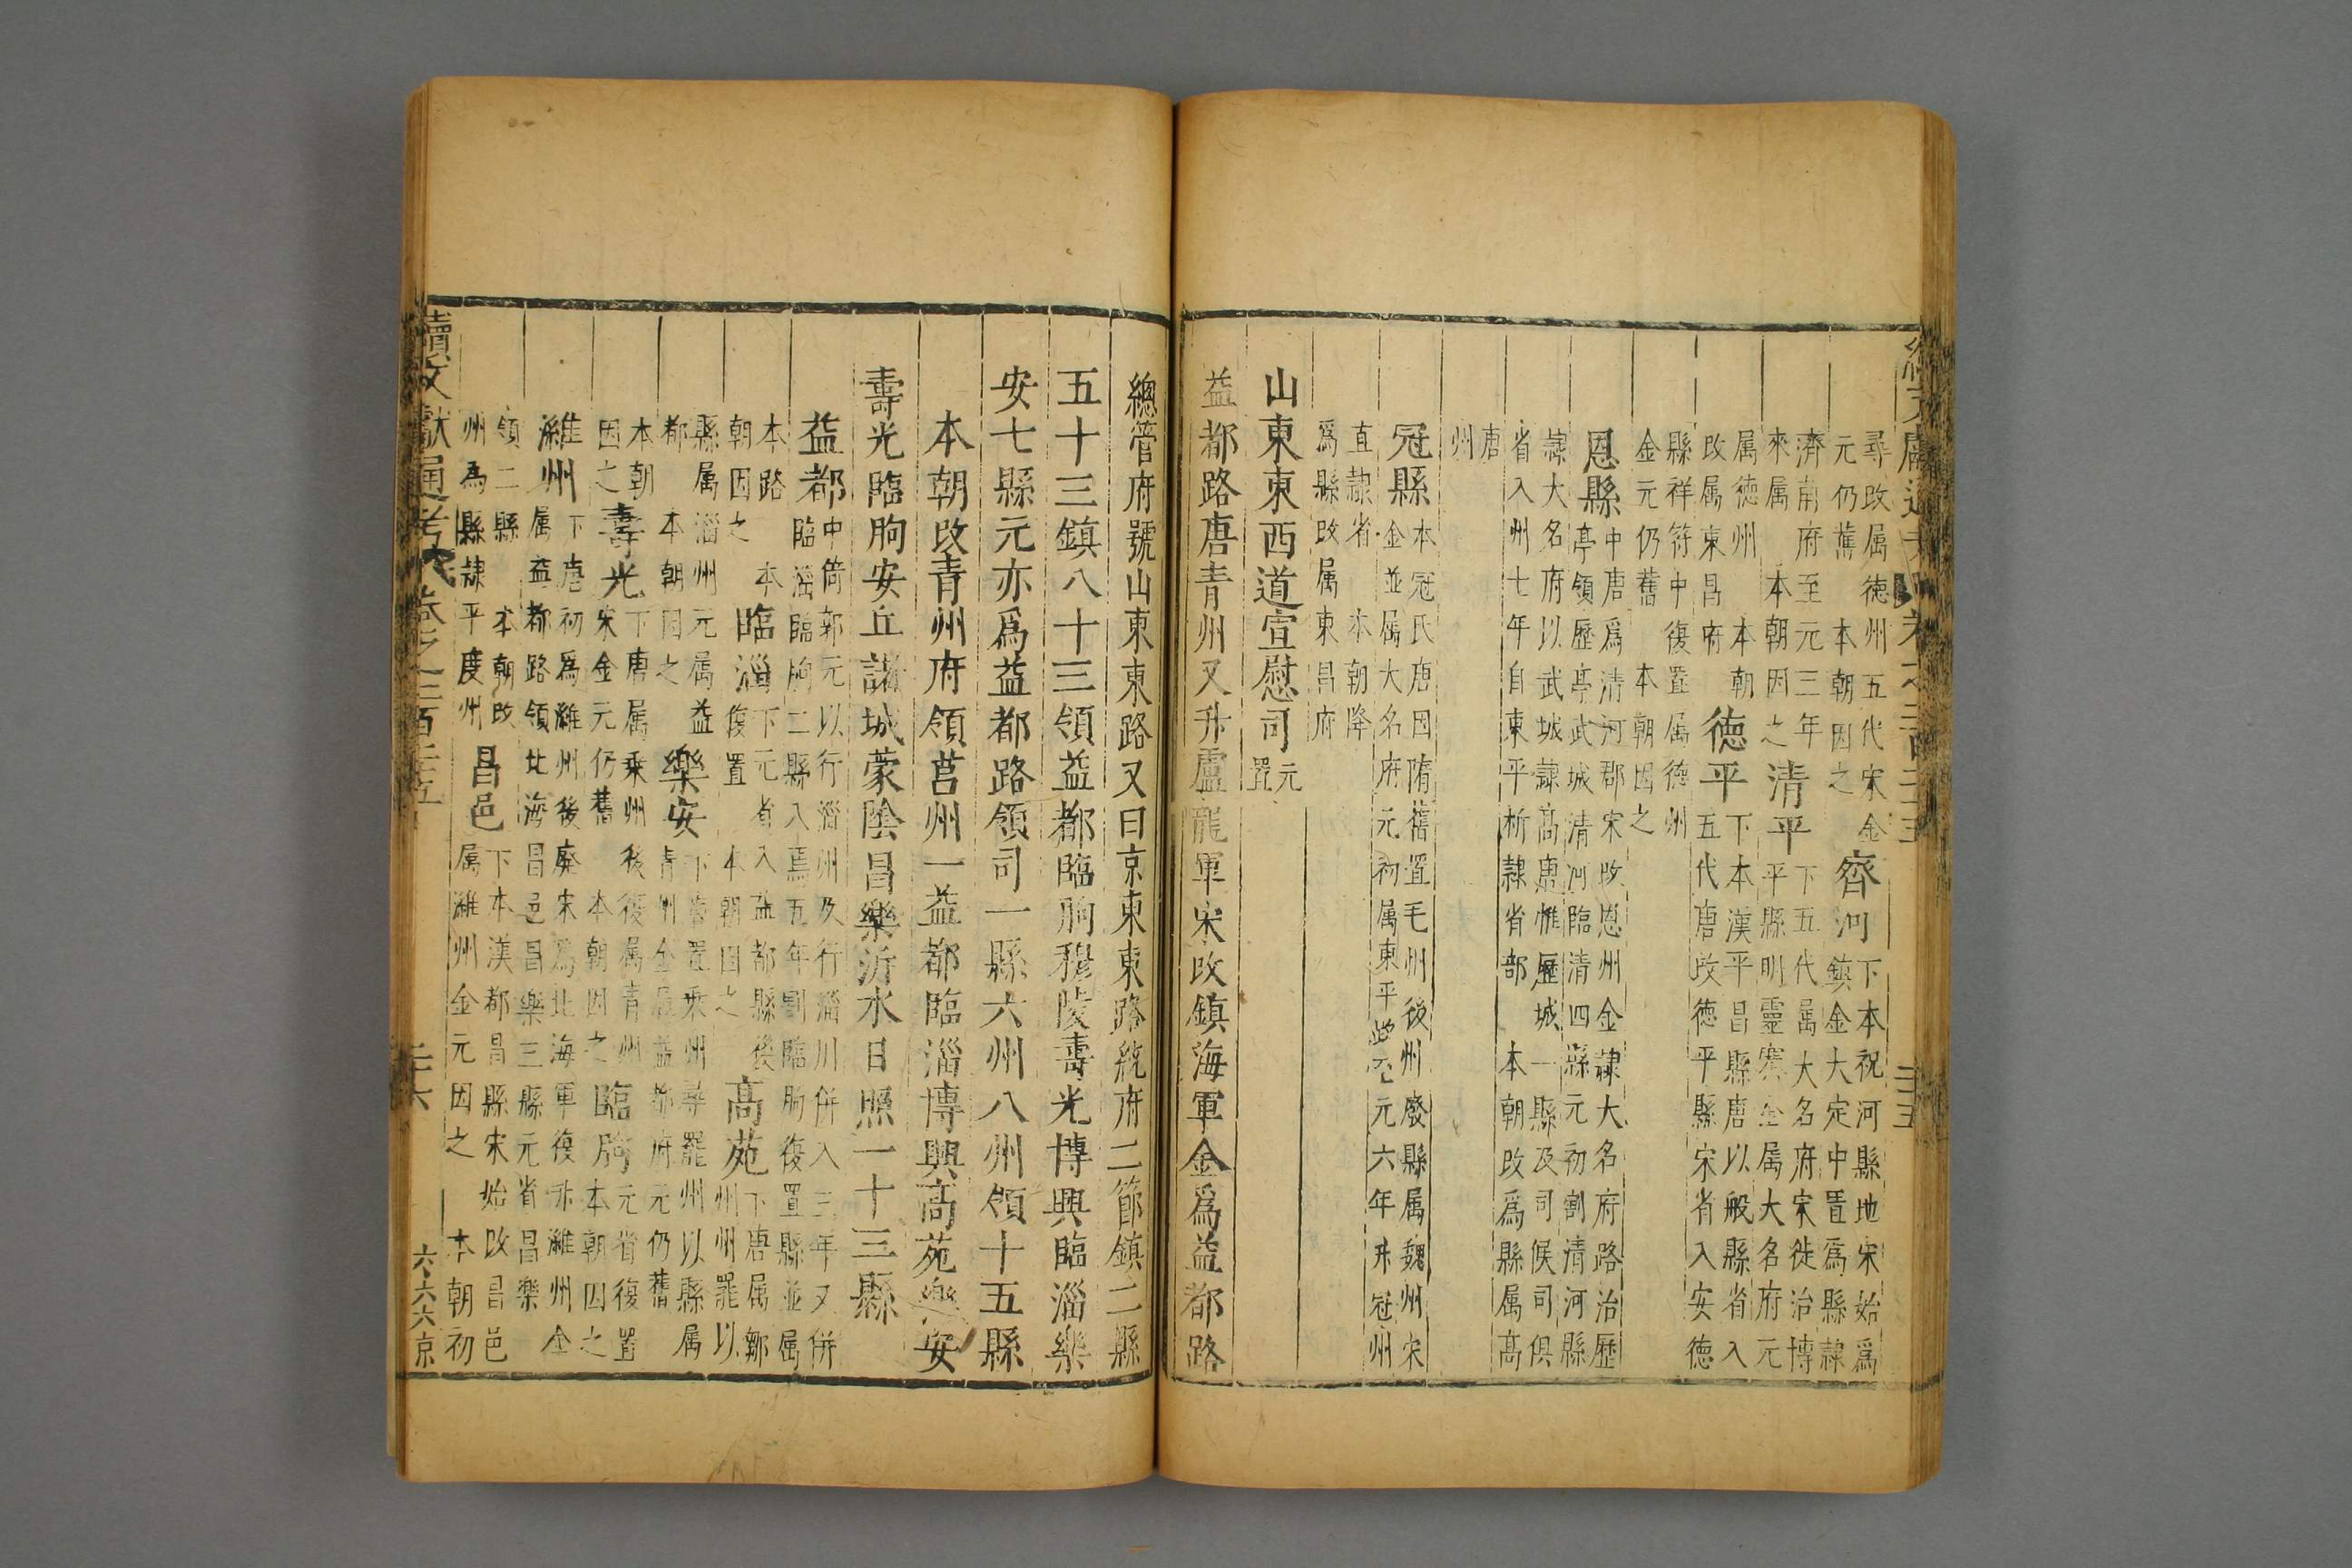 尋改属德州五代宋金
元仍舊　本朝因之
齊河
下本祝河縣地宋始爲
鎮金大定中置爲縣隷
濟南府至元三年
來属　本朝因之
清平
下五代属大名府宋徙治博
平縣明靈寨金属大名府元
属德州　本朝
改属東昌府
德平
下本漢平昌縣唐以般縣省入
五代唐改德平縣宋省入安德
縣祥符中復置属德州
金元仍舊　本朝因之
恩縣
中唐爲清河郡宋改恩州金隷大名府路治歷
亭領歷亭武城清河臨清四縣元初割清河縣
隷大名府以武城隷高唐惟歷城一縣及司候司俱
省入州七年自東平析隷省部　本朝改爲縣属高
唐
州
冠縣
本冠氏唐因隋舊置毛州後州廢縣属魏州宋
金並属大名府元初属東平至元六年升冠州
直隷省　本朝降
爲縣改属東昌府
山東東西道宣慰司元置
益都路唐青州又升盧龍軍宋改鎮海軍金爲益都路
總管府號山東東路又曰京東東路統府二節鎮二縣
五十三鎮八十三領益都臨朐穆陵壽光博興臨淄樂
安七縣元亦爲益都路領司一縣六州八州領十五縣
本朝改青州府領莒州一益都臨淄博興高苑樂安
壽光臨朐安丘諸城蒙陰昌樂沂水日照一十三縣
益都
中倚郭元以行淄州及行淄川併入三年又併
臨淄臨朐二縣入焉五年割臨朐復置縣並属
本路　本
朝因之
臨淄
下元省入益都縣後
復置　本朝因之
高苑
下唐属鄒
州州罷以
縣属淄州元属益
都　本朝因之
樂安
下唐置乘州尋罷州以縣属
青州金属益都府元仍舊
本朝
因之
壽光
下唐属乘州後復属青州
宋金元仍舊　本朝因之
臨朐
元省復置
本朝因之
濰州
下唐初爲濰州後廢宋爲北海軍復升濰州金
属益都路領北海昌邑昌樂三縣元省昌樂
領二縣　本朝改
州爲縣隷平度州
昌邑
下本漢都昌縣宋始改昌邑
属濰州金元因之　本朝初
續文獻通考
卷之二百二十五
二十六
六六六京